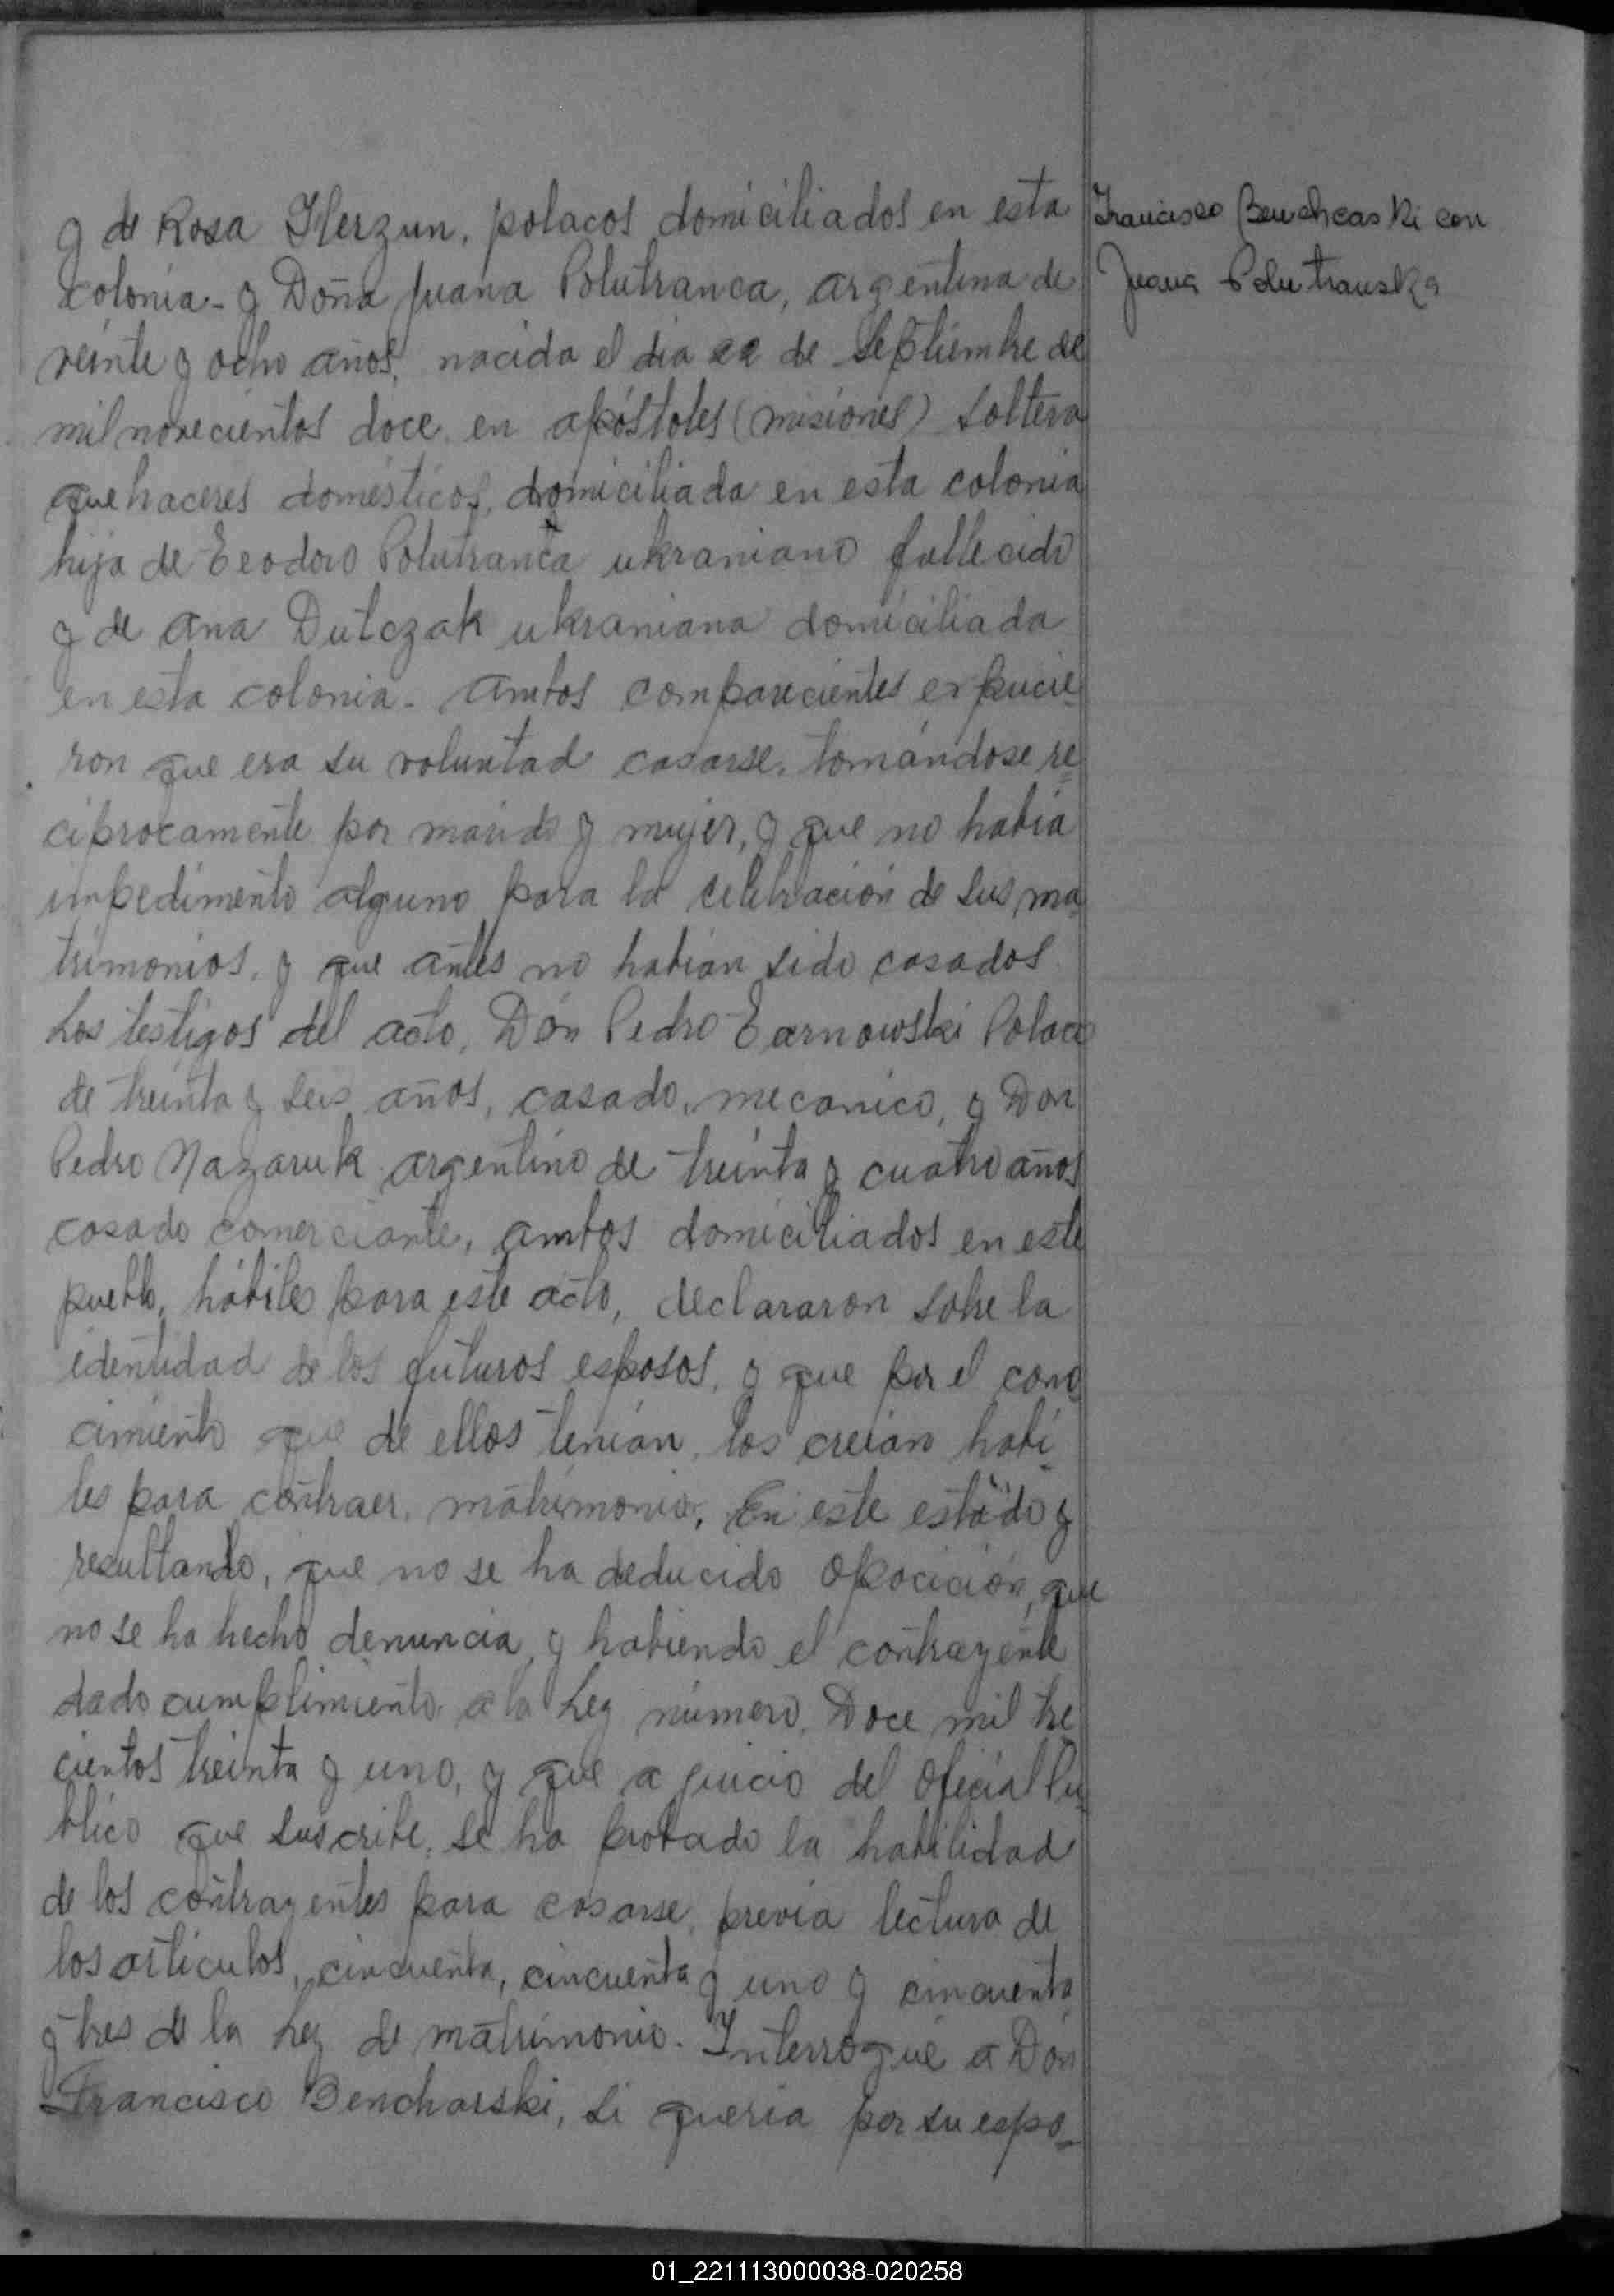 y de Rosa Herzun, polacos domiciliados en esta
colonia - y Doña Juana Polutranca, argentina de
veinte y ocho años, nacida el dia 22 de Septiembre de
mil novecientos doce en apóstoles (misiones) soltera
quehaceres domésticos, domiciliada en esta colonia
hija de Teodoro Polutranca ukraniano fallecido
y de Ana Dutczak ukraniana domiciliada
en esta colonia - Ambos comparecientes expucie=
ron que era su voluntad casarse, tomándose re=
ciprocamente por marido y mujer, y que no había
impedimento alguno para la celebración de sus ma
trimonios, y que antes no habian sido casados
Los testigos del acto, Dón Pedro Tarnowski Polaco
de treinta y seis años, casado, mecanico, y Don
Pedro Nazaruk argentino de treinta y cuatro años
casado comerciante, ambos domiciliados en este
pueblo, hábiles para este acto, declararon sobre la
identidad de los futuros esposos, y que por el cono
cimiento que de ellos tenían, los creian habi-
les para contraer, matrimonio, En este estado y
resultando, que no se ha deducido opocición, que
no se ha hecho denuncia, y habiendo el contrayente
dado cumplimiento a la Ley número, Doce mil tre
cientos treinta y uno, y que a juicio del Oficial Pu-
blico que suscribe, se ha probado la habilidad
de los contrayentes para casarse, previa lectura de
los artículos, cincuenta, cincuenta y uno y cincuenta
y tres de la Ley de matrimonio. Interrogué a Dón
Francisco Bencharski, si queria por su espo-
Francisco Bencheaski con
Juana Polutranska
01_221113000038-020258